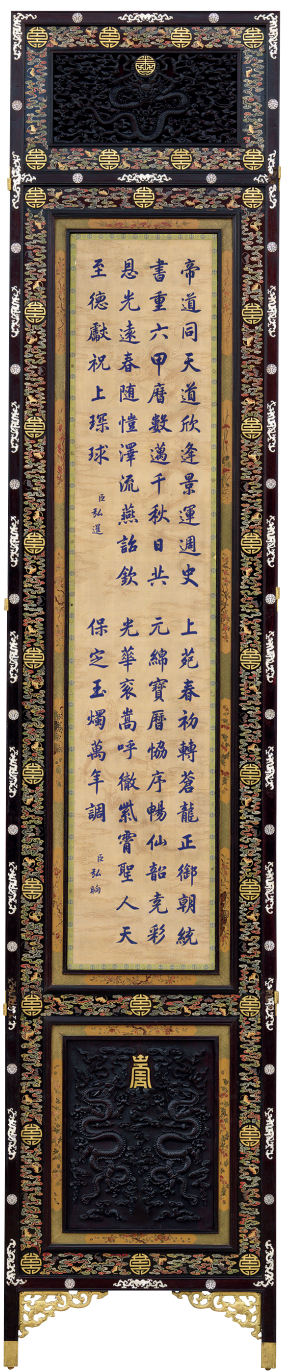 帝道同天道欣逢景運週史
書重六甲曆數邁千秋日共
恩光遠春随愷澤流燕詒欽
至德獻祝上琛球
臣弘暹
上苑春初轉蒼龍正御朝統
元綿寶曆恊序暢仙韶堯彩
光華袞嵩呼徹紫霄聖人天
保定玉燭萬年調
臣弘晌